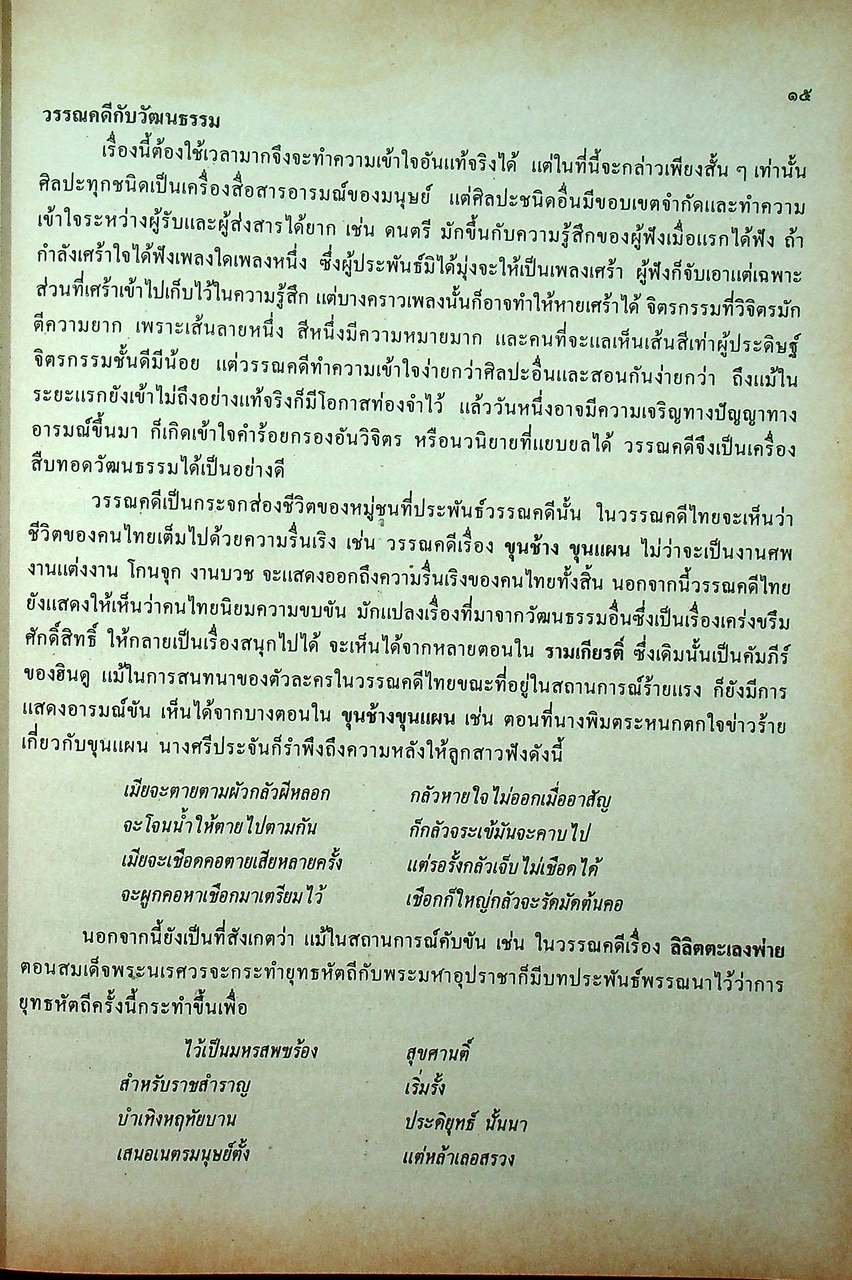 ๑๕
วรรณคดีกับวัฒนธรรม
เรื่องนี้ต้องใช้เวลามากจึงจะทำความเข้าใจอันแท้จริงได้ แต่ในที่นี้จะกล่าวเพียงสั้น ๆ เท่านั้น
ศิลปะทุกชนิดเป็นเครื่องสื่อสารอารมณ์ของมนุษย์ แต่ศิลปะชนิดอื่นมีขอบเขตจำกัดและทำความ
เข้าใจระหว่างผู้รับและผู้ส่งสารได้ยาก เช่น ดนตรี มักขึ้นกับความรู้สึกของผู้ฟังเมื่อแรกได้ฟัง ถ้า
กำลังเศร้าใจได้ฟังเพลงใดเพลงหนึ่ง ซึ่งผู้ประพันธ์มิได้มุ่งจะให้เป็นเพลงเศร้า ผู้ฟังก็จับเอาแต่เฉพาะ
ส่วนที่เศร้าเข้าไปเก็บไว้ในความรู้สึก แต่บางคราวเพลงนั้นก็อาจทำให้หายเศร้าได้ จิตรกรรมที่วิจิตรมัก
ตีความยาก เพราะเส้นลายหนึ่ง สีหนึ่งมีความหมายมาก และคนที่จะแลเห็นเส้นสีเท่าผู้ประดิษฐ์
จิตรกรรมชั้นดีมีน้อย แต่วรรณคดีทำความเข้าใจง่ายกว่าศิลปะอื่นและสอนกันง่ายกว่า ถึงแม้ใน
ระยะแรกยังเข้าไม่ถึงอย่างแท้จริงก็มีโอกาสท่องจำไว้ แล้ววันหนึ่งอาจมีความเจริญทางปัญญาทาง
อารมณ์ขึ้นมา ก็เกิดเข้าใจคำร้อยกรองอันวิจิตร หรือนวนิยายที่แยบยลได้ วรรณคดีจึงเป็นเครื่อง
สืบทอดวัฒนธรรมได้เป็นอย่างดี
วรรณคดีเป็นกระจกส่องชีวิตของหมู่ชนที่ประพันธ์วรรณคดีนั้น ในวรรณคดีไทยจะเห็นว่า
ชีวิตของคนไทยเต็มไปด้วยความรื่นเริง เช่น วรรณคดีเรื่อง ขุนช้าง ขุนแผน ไม่ว่าจะเป็นงานศพ
งานแต่งงาน โกนจุก งานบวช จะแสดงออกถึงความรื่นเริงของคนไทยทั้งสิ้น นอกจากนี้วรรณคดีไทย
ยังแสดงให้เห็นว่าคนไทยนิยมความขบขัน มักแปลงเรื่องที่มาจากวัฒนธรรมอื่นซึ่งเป็นเรื่องเคร่งขรึม
ศักดิ์สิทธิ์ ให้กลายเป็นเรื่องสนุกไปได้ จะเห็นได้จากหลายตอนใน รามเกียรติ์ ซึ่งเดิมนั้นเป็นคัมภีร์
ของฮินดู แม้ในการสนทนาของตัวละครในวรรณคดีไทยขณะที่อยู่ในสถานการณ์ร้ายแรง ก็ยังมีการ
แสดงอารมณ์ขัน เห็นได้จากบางตอนใน ขุนช้างขุนแผน เช่น ตอนที่นางพิมตระหนกตกใจข่าวร้าย
เกี่ยวกับขุนแผน นางศรีประจันก็รำพึงถึงความหลังให้ลูกสาวฟังดังนี้
เมียจะตายตามผัวกลัวผีหลอก กลัวหายใจไม่ออกเมื่ออาสัญ
จะโจนน้ำให้ตายไปตามกัน ก็กลัวจระเข้มันจะคาบไป
เมียจะเชือดคอตายเสียหลายครั้ง แต่รอรั้งกลัวเจ็บไม่เชือดได้
จะผูกคอหาเชือกมาเตรียมไว้ เชือกก็ใหญ่กลัวจะรัดมัดต้นคอ
นอกจากนี้ยังเป็นที่สังเกตว่า แม้ในสถานการณ์คับขัน เช่น ในวรรณคดีเรื่อง ลิลิตตะเลงพ่าย
ตอนสมเด็จพระนเรศวรจะกระทำยุทธหัตถีกับพระมหาอุปราชาก็มีบทประพันธ์พรรณนาไว้ว่าการ
ยุทธหัตถีครั้งนี้กระทำขึ้นเพื่อ
ไว้เป็นมหรสพซร้อง สุขศานติ์
สำหรับราชสำราญ เริ่มรั้ง
บำเทิงหฤทัยบาน ประดิยุทธ์ นั้นนา
เสนอเนตรมนุษย์ตั้ง แต่หล้าเลอสรวง